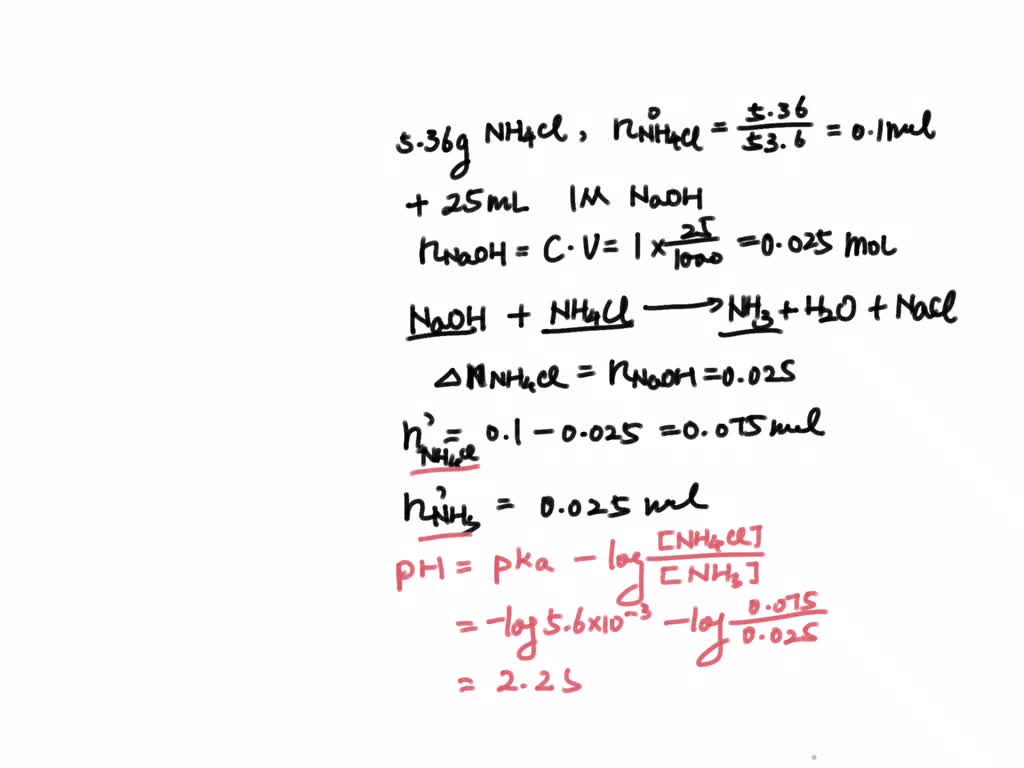 5.36g NH4Cl, n°NH4Cl = 5.36/53.6 = 0.1mol
+ 25mL 1M NaOH
nNaOH = C·V = 1 × 25/1000 = 0.025 mol
NaOH + NH4Cl → NH3 + H2O + NaCl
ΔnNH4Cl = nNaOH = 0.025
n'NH4Cl = 0.1 - 0.025 = 0.075 mol
n'NH3 = 0.025 mol
pH = pka - log [NH4Cl]/[NH3]
= -log 5.6×10⁻³ - log 0.075/0.025
= 2.25